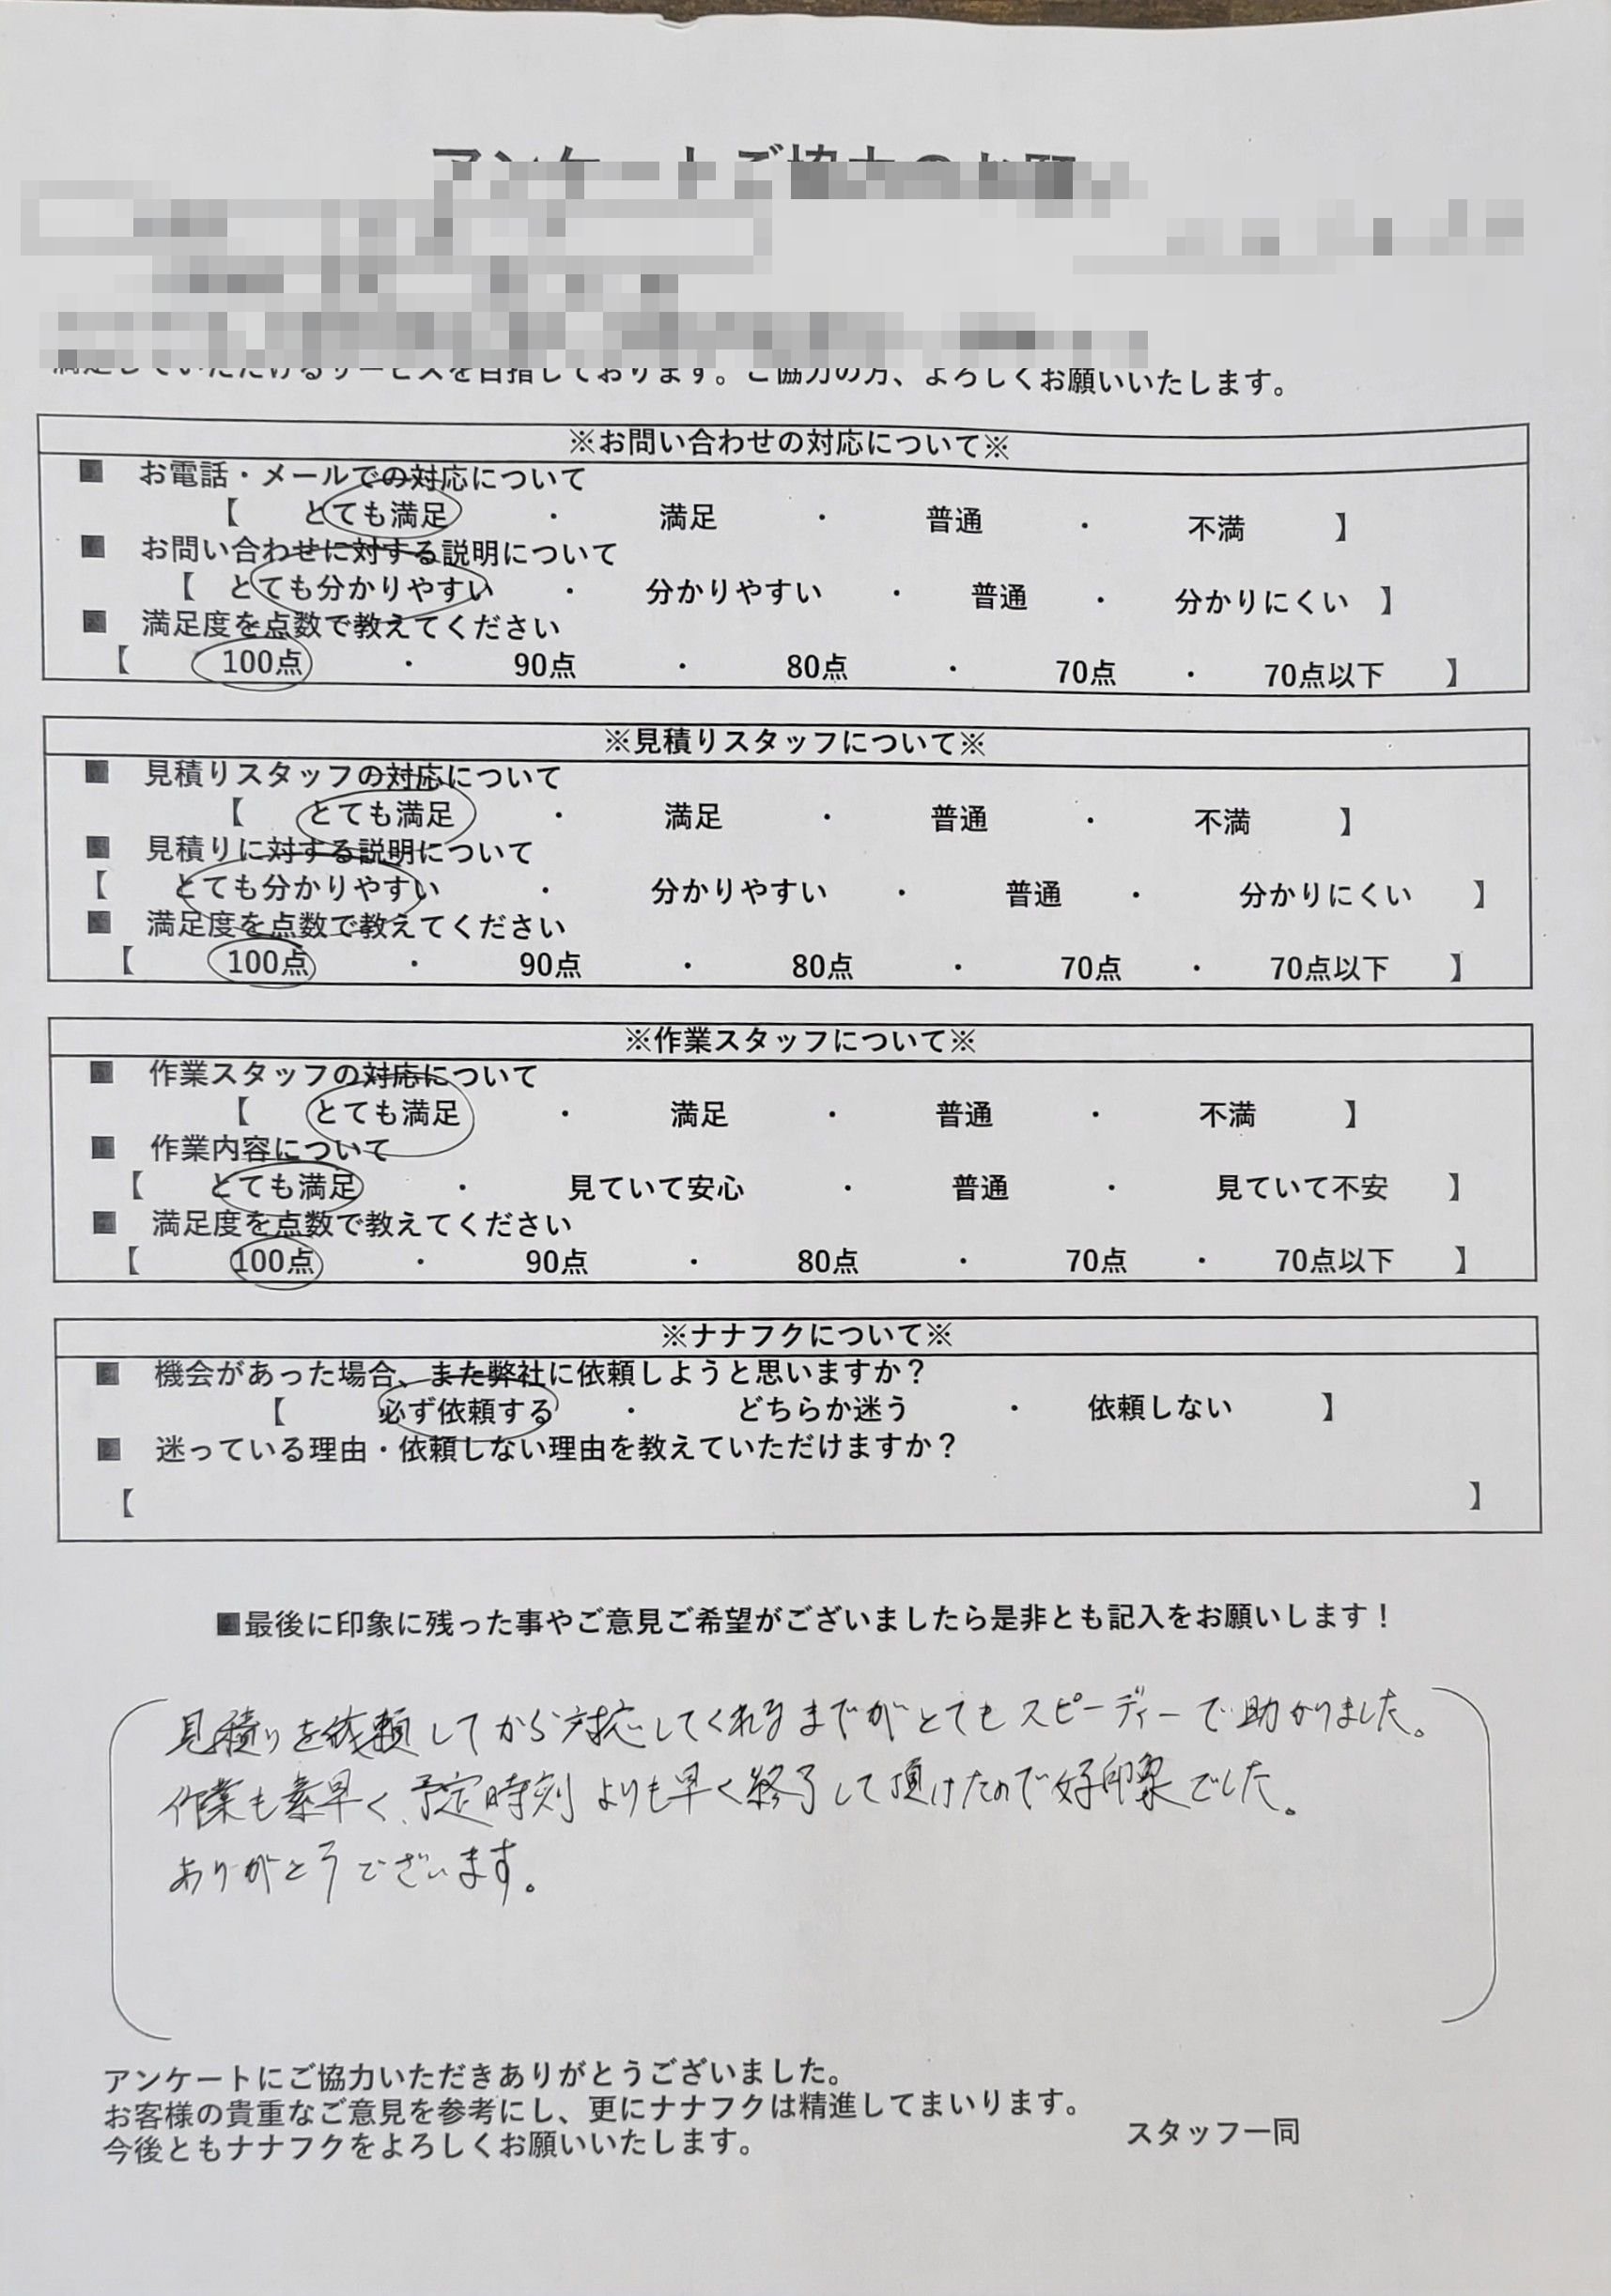 アンケートご協力のお願
満足していただけるサービスを目指しております。ご協力の方、よろしくお願いいたします。
※お問い合わせの対応について※
■ お電話・メールでの対応について
【 とても満足 ・ 満足 ・ 普通 ・ 不満 】
■ お問い合わせに対する説明について
【 とても分かりやすい ・ 分かりやすい ・ 普通 ・ 分かりにくい 】
■ 満足度を点数で教えてください
【 100点 ・ 90点 ・ 80点 ・ 70点 ・ 70点以下 】
※見積りスタッフについて※
■ 見積りスタッフの対応について
【 とても満足 ・ 満足 ・ 普通 ・ 不満 】
■ 見積りに対する説明について
【 とても分かりやすい ・ 分かりやすい ・ 普通 ・ 分かりにくい 】
■ 満足度を点数で教えてください
【 100点 ・ 90点 ・ 80点 ・ 70点 ・ 70点以下 】
※作業スタッフについて※
■ 作業スタッフの対応について
【 とても満足 ・ 満足 ・ 普通 ・ 不満 】
■ 作業内容について
【 とても満足 ・ 見ていて安心 ・ 普通 ・ 見ていて不安 】
■ 満足度を点数で教えてください
【 100点 ・ 90点 ・ 80点 ・ 70点 ・ 70点以下 】
※ナナフクについて※
■ 機会があった場合、また弊社に依頼しようと思いますか？
【 必ず依頼する ・ どちらか迷う ・ 依頼しない 】
■ 迷っている理由・依頼しない理由を教えていただけますか？
【 】
■最後に印象に残った事やご意見ご希望がございましたら是非とも記入をお願いします！
見積りを依頼してから対応してくれるまでがとてもスピーディーで助かりました。
作業も素早く、予定時刻よりも早く終了して頂けたので好印象でした。
ありがとうございます。
アンケートにご協力いただきありがとうございました。
お客様の貴重なご意見を参考にし、更にナナフクは精進してまいります。
今後ともナナフクをよろしくお願いいたします。
スタッフ一同